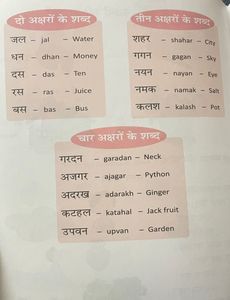 दो अक्षरों के शब्द
जल – jal – Water
धन – dhan – Money
दस – das – Ten
रस – ras – Juice
बस – bas – Bus
तीन अक्षरों के शब्द
शहर – shahar – City
गगन – gagan – Sky
नयन – nayan – Eye
नमक – namak – Salt
कलश – kalash – Pot
चार अक्षरों के शब्द
गरदन – garadan – Neck
अजगर – ajagar – Python
अदरख – adarakh – Ginger
कटहल – katahal – Jack fruit
उपवन – upvan – Garden